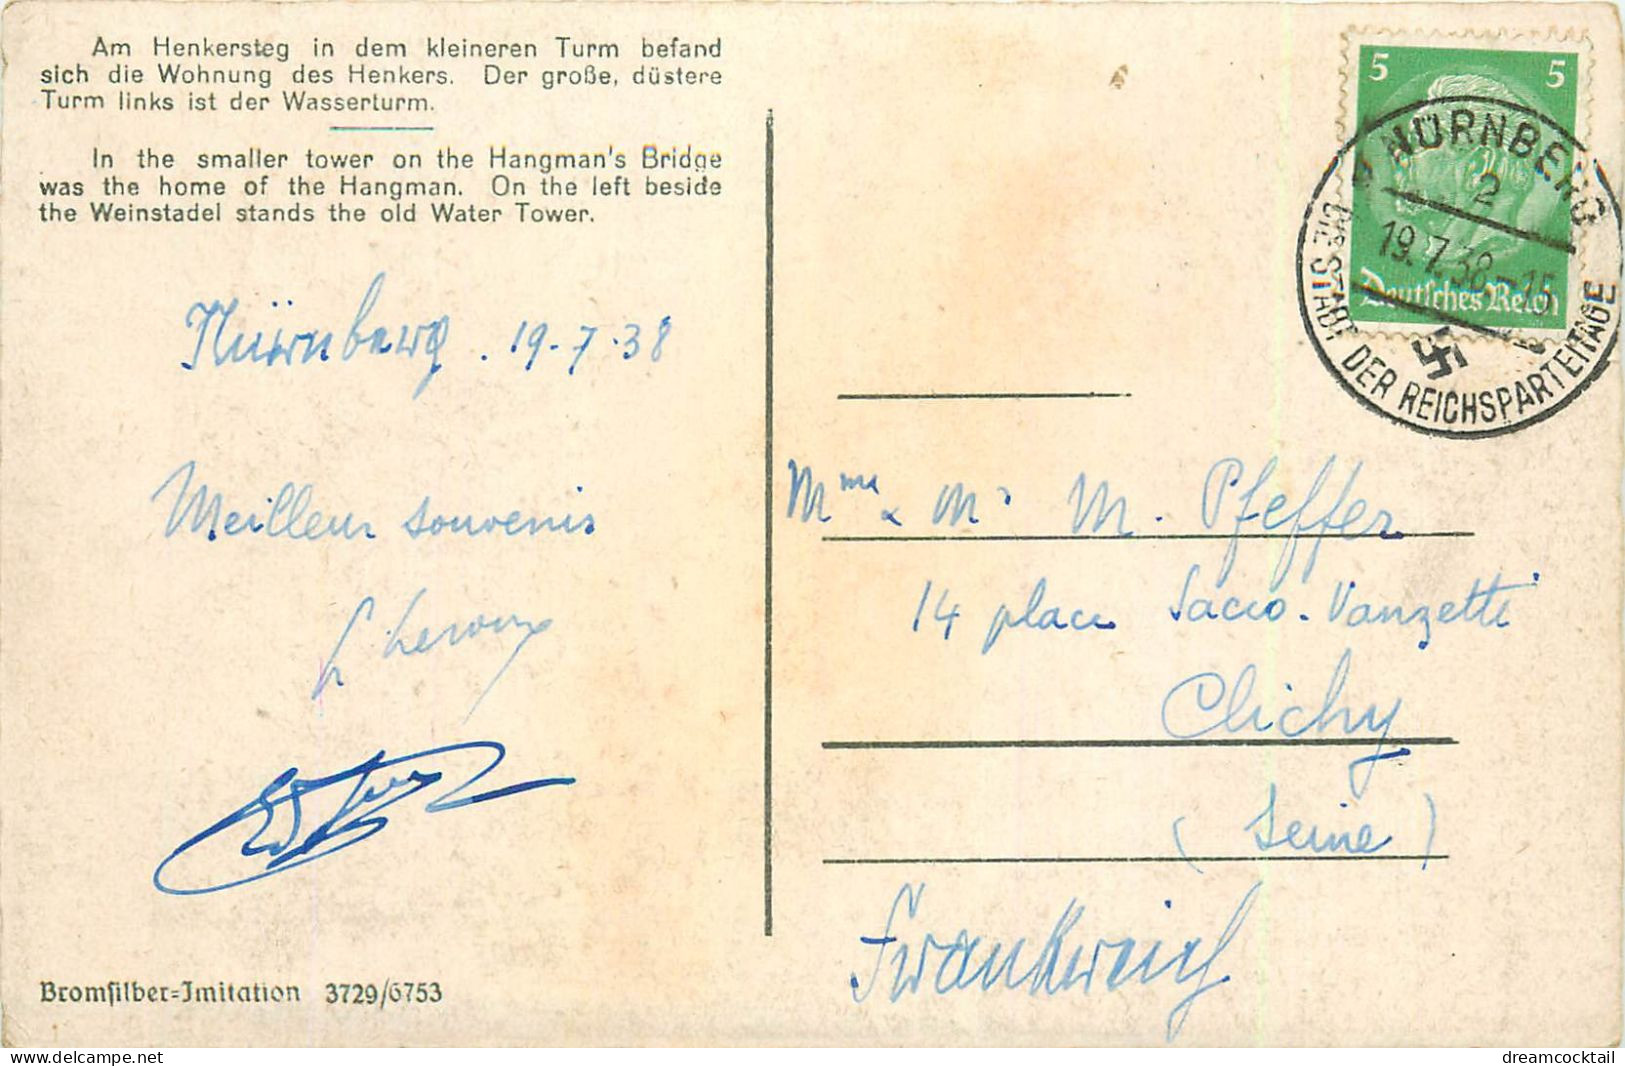 Am Henkersteg in dem kleineren Turm befand
sich die Wohnung des Henkers. Der große, düstere
Turm links ist der Wasserturm.
In the smaller tower on the Hangman's Bridge
was the home of the Hangman. On the left beside
the Weinstadel stands the old Water Tower.
Nürnberg. 19-7.38
Meilleur souvenir
Bromsilber=Imitation 3729/6753
5 5
Deutsches Reich
NÜRNBERG
2
19.7.38.-15
DIE STADT DER REICHSPARTEITAGE
Mme & Mr M. Pfeffer
14 place Sacco-Vanzetti
Clichy
(Seine)
Frankreich
dreamcocktail